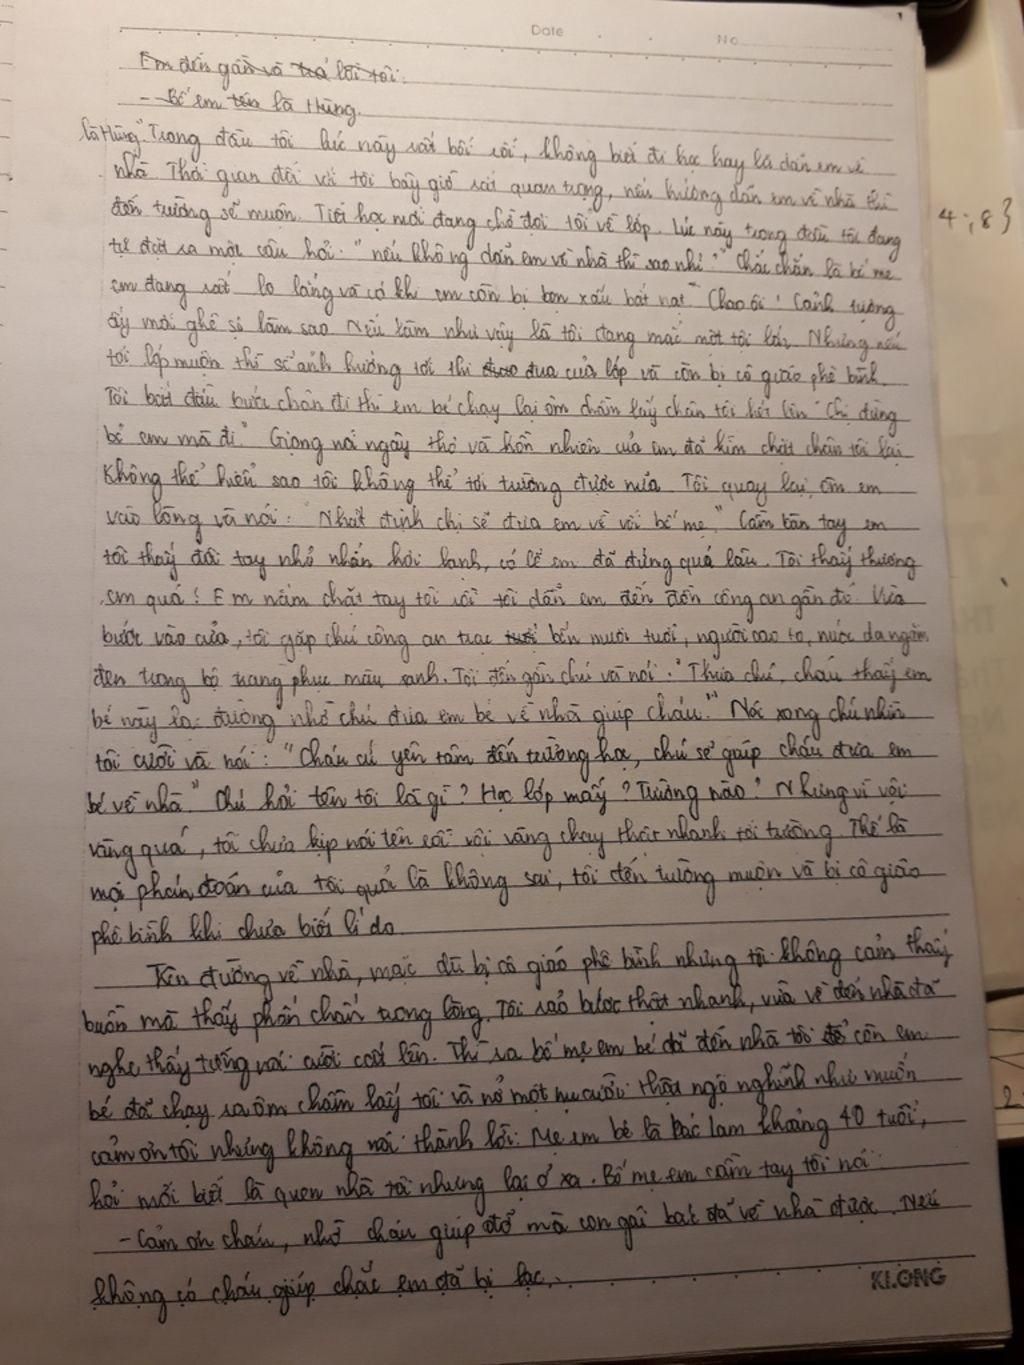 Date No
Em đến gần và trả lời tôi:
- Bố em tên là Hùng.
là Hùng" Trong đầu tôi lúc này rất bối rối, không biết đi học hay là dẫn em về
nhà. Thời gian đối với tôi bây giờ rất quan trọng, nếu hướng dẫn em về nhà thì
đến trường sẽ muộn. Tiết học mới đang chờ đợi tôi về lớp. Lúc này trong đầu tôi đang
tự đặt ra một câu hỏi: "nếu không dẫn em về nhà thì sao nhỉ?" Chắc chắn là bố mẹ
em đang rất lo lắng và có khi em còn bị bọn xấu bắt nạt" Chao ôi! Cảnh tượng
ấy mới ghê sợ làm sao. Nếu làm như vậy là tôi đang mắc một tội lớn. Nhưng nếu
tới lớp muộn thì sẽ ảnh hưởng tới thi đua của lớp và còn bị cô giáo phê bình.
Tôi bắt đầu bước chân đi thì em bé chạy lại ôm chầm lấy chân tôi hét lên "Chị đừng
bỏ em mà đi." Giọng nói ngây thơ và hồn nhiên của em đã kìm chặt chân tôi lại
Không thể hiểu sao tôi không thể tới trường được nữa. Tôi quay lại, ôm em
vào lòng và nói: "Nhất định chị sẽ đưa em về với bố mẹ." Cầm bàn tay em
tôi thấy đôi tay nhỏ nhắn hơi lạnh, có lẽ em đã đứng quá lâu. Tôi thấy thương
em quá! Em nắm chặt tay tôi rồi tôi dẫn em đến đồn công an gần đó. Vừa
bước vào cửa, tôi gặp chú công an trạc bốn mươi tuổi, người cao to, nước da ngăm
đen trong bộ trang phục màu xanh. Tôi đến gần chú và nói: "Thưa chú, cháu thấy em
bé này lạc đường nhờ chú đưa em bé về nhà giúp cháu." Nói xong chú nhìn
tôi cười và nói: "Cháu cứ yên tâm đến trường học, chú sẽ giúp cháu đưa em
bé về nhà." Chú hỏi tên tôi là gì? Học lớp mấy? Trường nào? Nhưng vì vội
vàng quá, tôi chưa kịp nói tên rồi vội vàng chạy thật nhanh tới trường. Thế là
mọi phán đoán của tôi quả là không sai, tôi đến trường muộn và bị cô giáo
phê bình khi chưa biết lí do.
Trên đường về nhà, mặc dù bị cô giáo phê bình nhưng tôi không cảm thấy
buồn mà thấy phấn chấn trong lòng. Tôi rảo bước thật nhanh, vừa về đến nhà đã
nghe thấy tiếng nói cười cất lên. Thì ra bố mẹ em bé đã đến nhà tôi để còn em
bé đã chạy ra ôm chầm lấy tôi và nở một nụ cười thật ngộ nghĩnh như muốn
cảm ơn tôi nhưng không nói thành lời. Mẹ em bé là bác Lam khoảng 40 tuổi,
hỏi mới biết là quen nhà tôi nhưng lại ở xa. Bố mẹ em cầm tay tôi nói:
- Cảm ơn cháu, nhờ cháu giúp đỡ mà con gái bác đã về nhà được. Nếu
không có cháu giúp chắc em đã bị lạc.
KLONG
4;8}
2